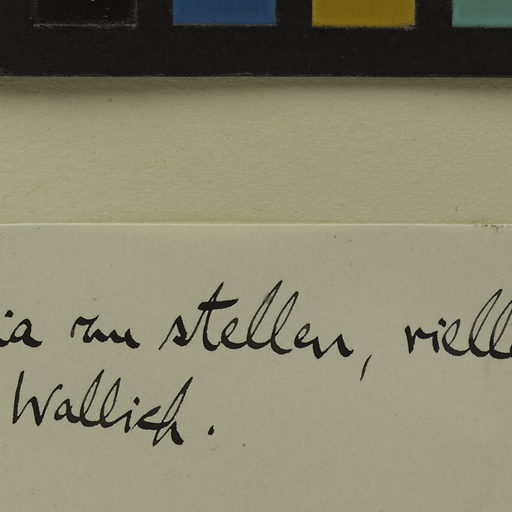 ia zu stellen, viell
Wallich.